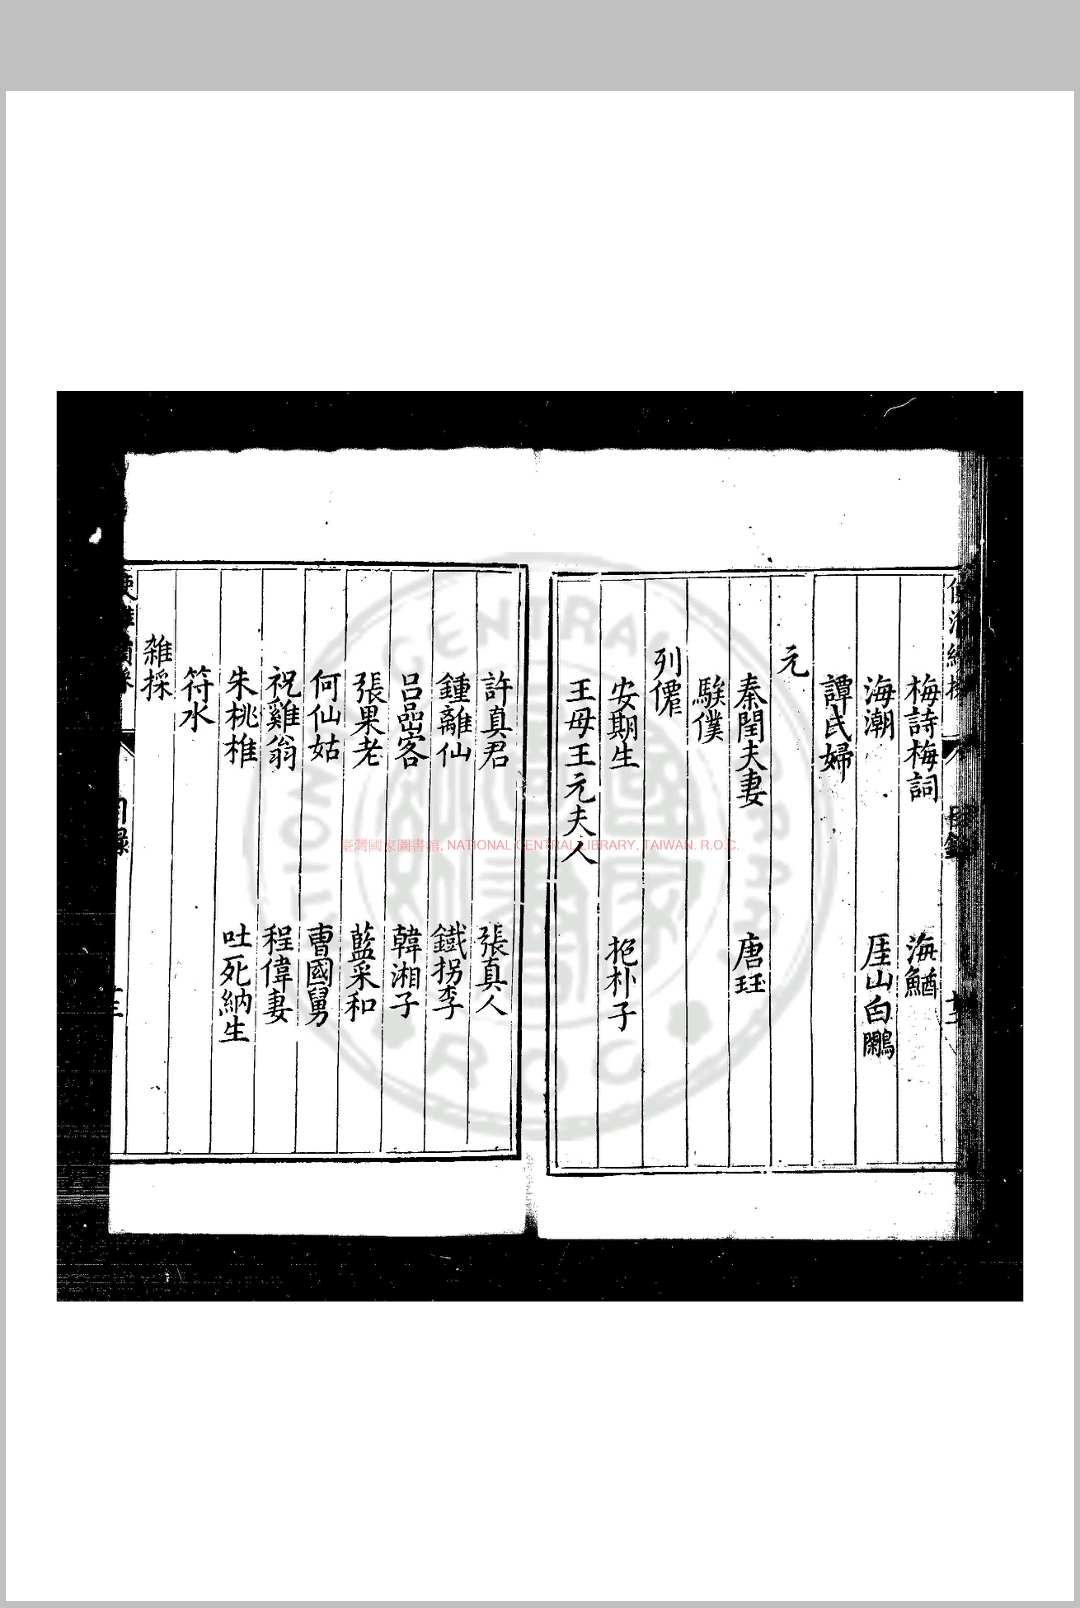 梅詩梅詞 海鰌
海潮 厓山白鷴
譚氏婦
元
秦閏夫妻 唐珏
騃僕
列僊
安期生 抱朴子
王母王元夫人
許真君 張真人
鍾離仙 鐵拐李
呂嵒客 韓湘子
張果老 藍采和
何仙姑 曹國舅
祝雞翁 程偉妻
朱桃椎 吐死納生
符水
雜採
目錄
臺灣國家圖書館, NATIONAL CENTRAL LIBRARY, TAIWAN, R.O.C.